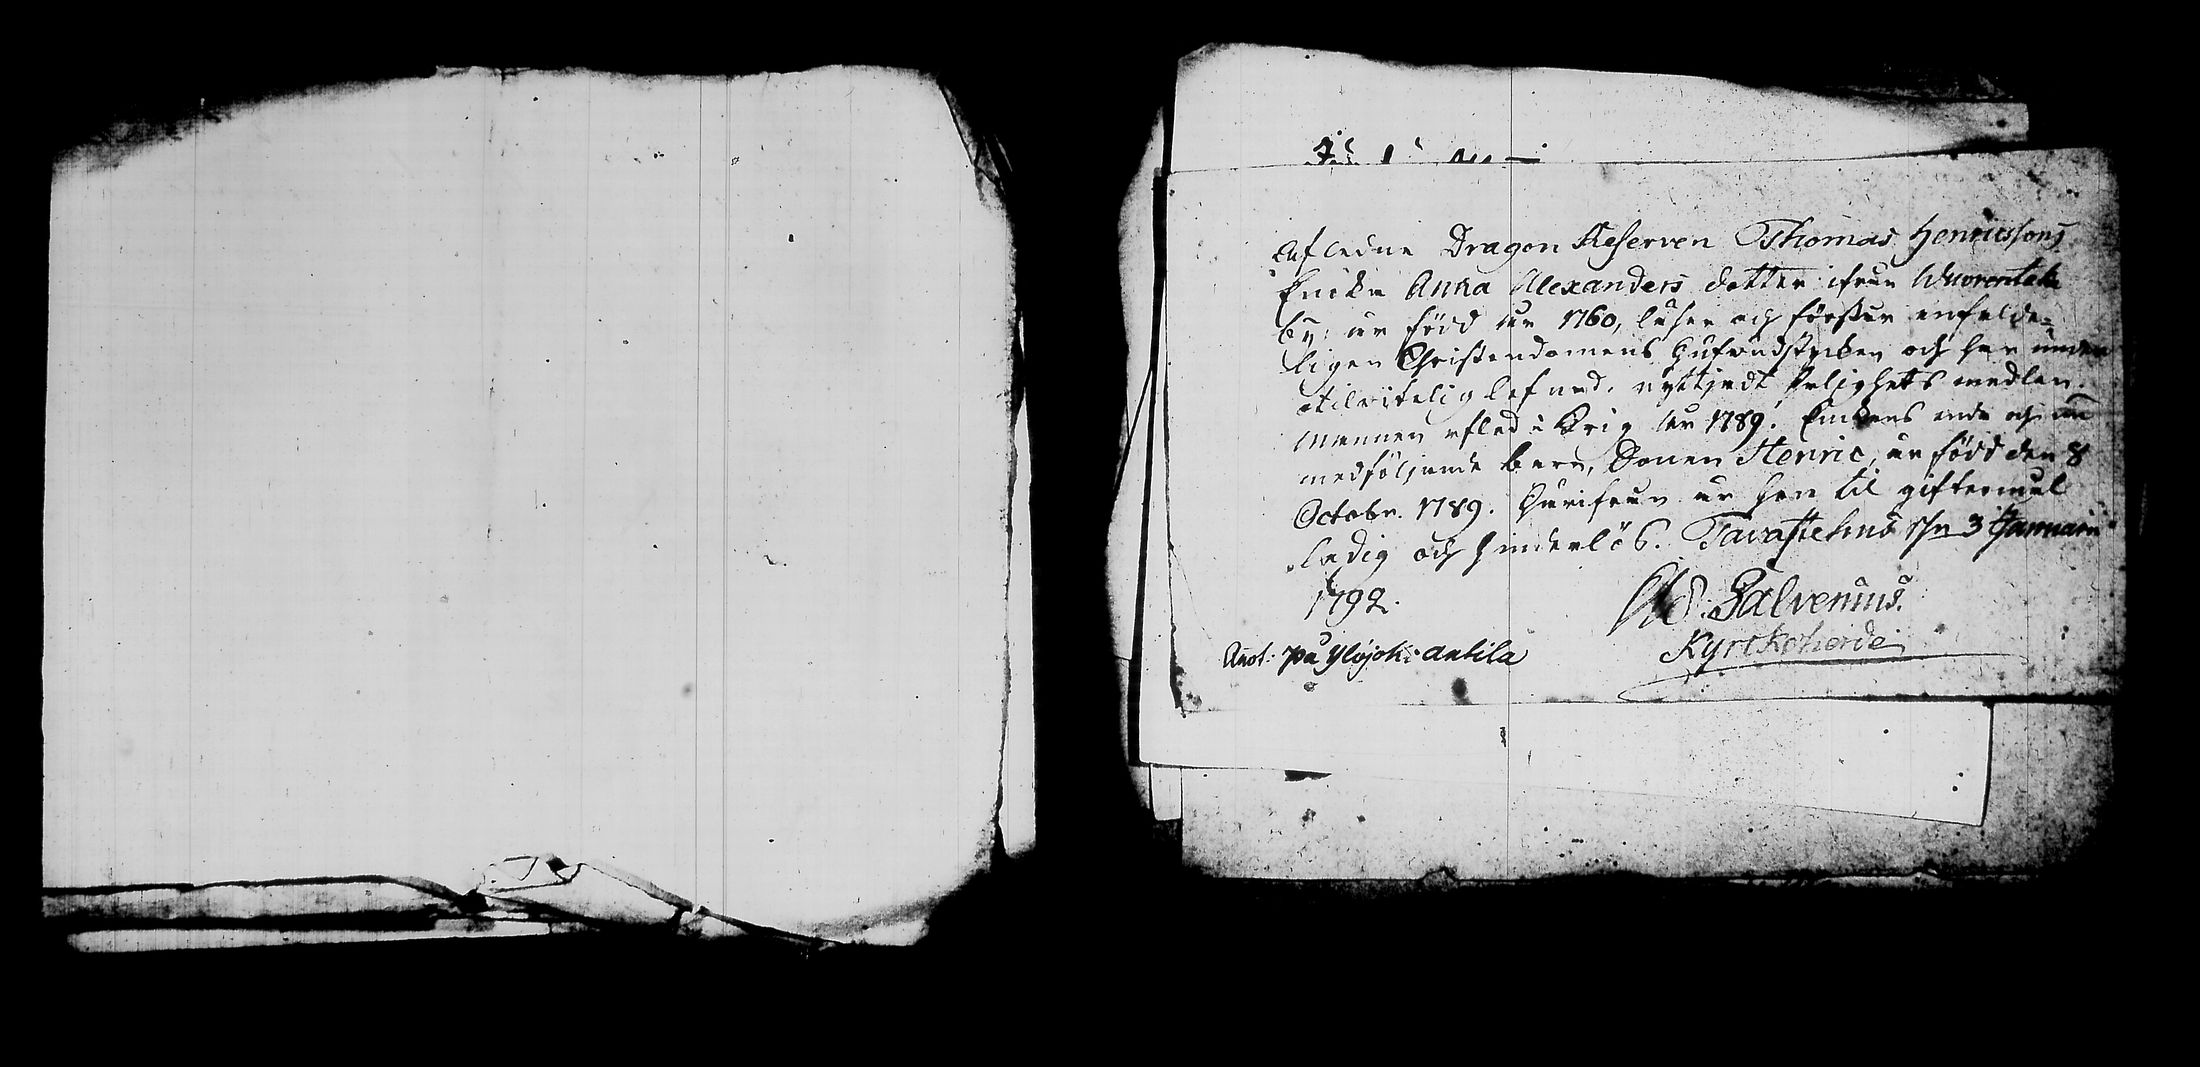 Afledne Dragon Reserven Thomas Henricssons
Enckia Anna Alexanders dotter ifrån Wuorentaka
by, är född år 1760, läser och förstår enfalde-
ligen Christendomens hufvudstycken och har under
otilvitelig lefnad, nyttjadt salighets medlen.
Mannen afled i Krig år 1789. Enckans enda och nu
medföljande barn, Sonen Henric, är född den 8
Octobr. 1789. Härifrån är hon til giftermål
ledig och hinderlös. Tavastehus d. 3 Januarii
1792.
Salvenius.
Kyrckoherde
Anot: på Ylöjoki Antila